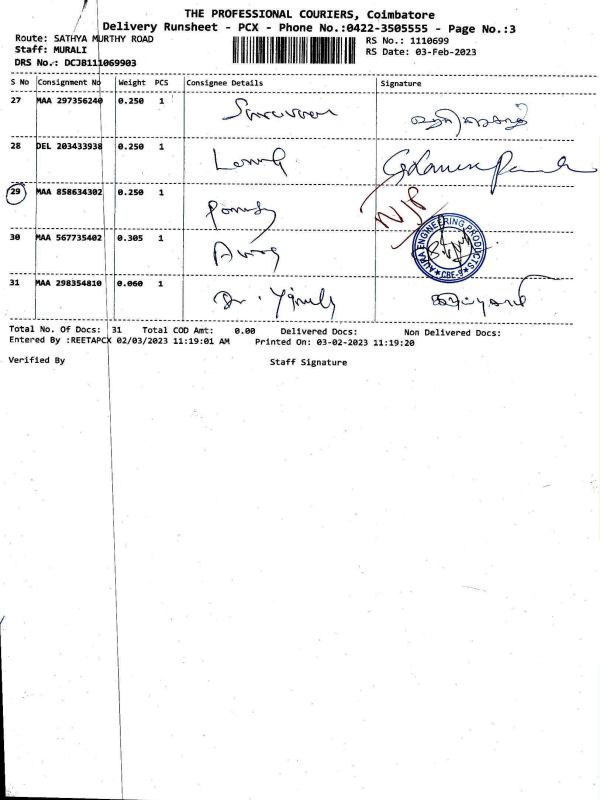 THE PROFESSIONAL COURIERS, Coimbatore
Delivery Runsheet - PCX - Phone No.:0422-3505555 - Page No.:3
Route: SATHYA MURTHY ROAD
RS No.: 1110699
Staff: MURALI
RS Date: 03-Feb-2023
DRS No.: DCJB111069903
S No Consignment No Weight PCS Consignee Details Signature
27 MAA 297356240 0.250 1
28 DEL 203433938 0.250 1
29 MAA 858634302 0.250 1
30 MAA 567735402 0.305 1
ENGINEERING PRODUCTS
CBE-9
31 MAA 298354810 0.060 1 Dr.
Total No. Of Docs: 31 Total COD Amt: 0.00 Delivered Docs: Non Delivered Docs:
Entered By :REETAPCX 02/03/2023 11:19:01 AM Printed On: 03-02-2023 11:19:20
Verified By Staff Signature